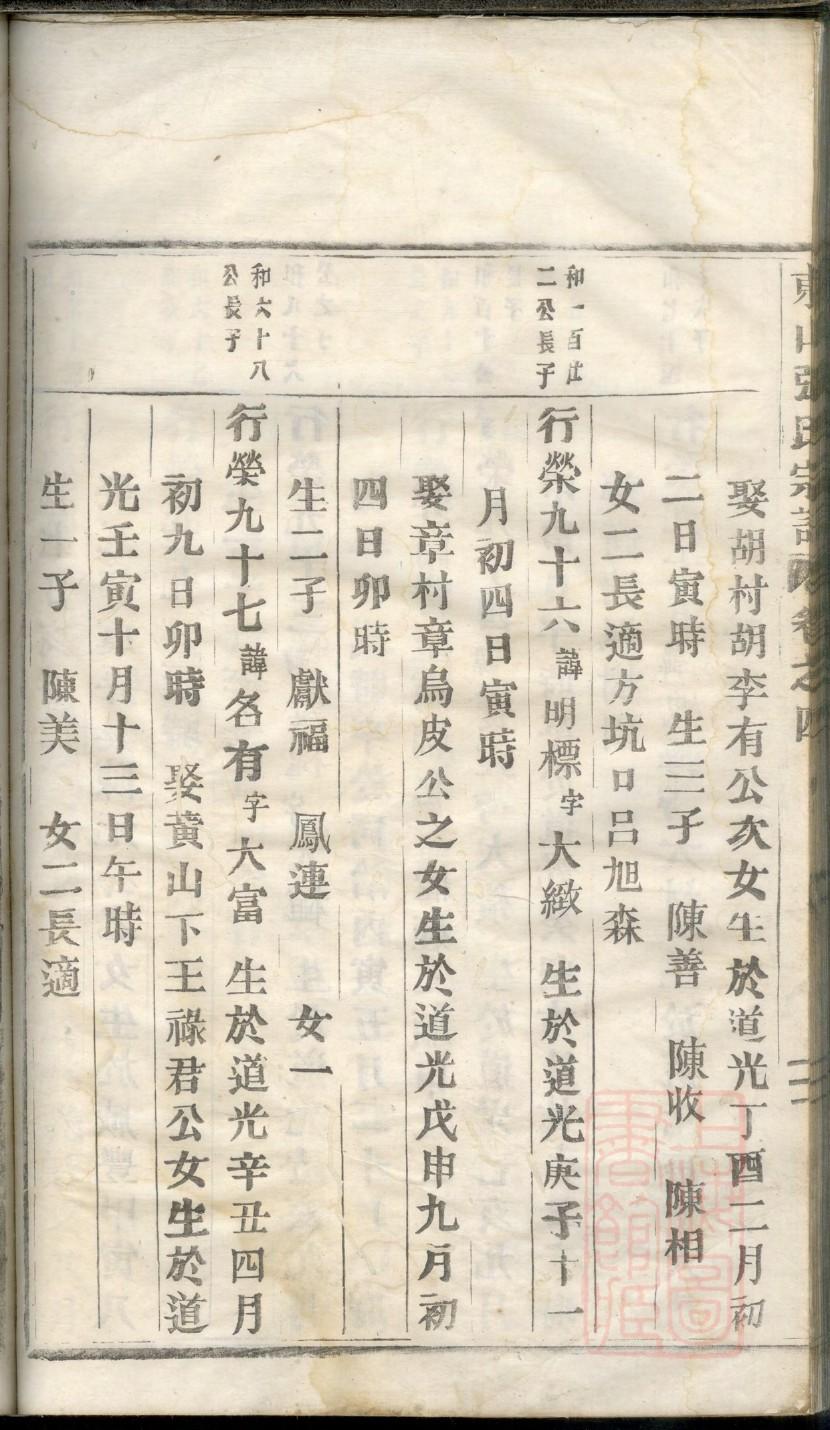 東山張氏宗譜 卷之四
娶胡村胡李有公次女生於道光丁酉二月初
二日寅時 生三子 陳善 陳收 陳相
女二長適方坑口呂旭森
和一百廿
二公長子
行榮九十六諱明標字大緻 生於道光庚子十一
月初四日寅時
娶章村章烏皮公之女生於道光戊申九月初
四日卯時
生二子 獻福 鳳連 女一
和六十八
公長子
行榮九十七諱各有字大富 生於道光辛丑四月
初九日卯時 娶黃山下王祿君公女生於道
光壬寅十月十三日午時
生一子 陳美 女二長適